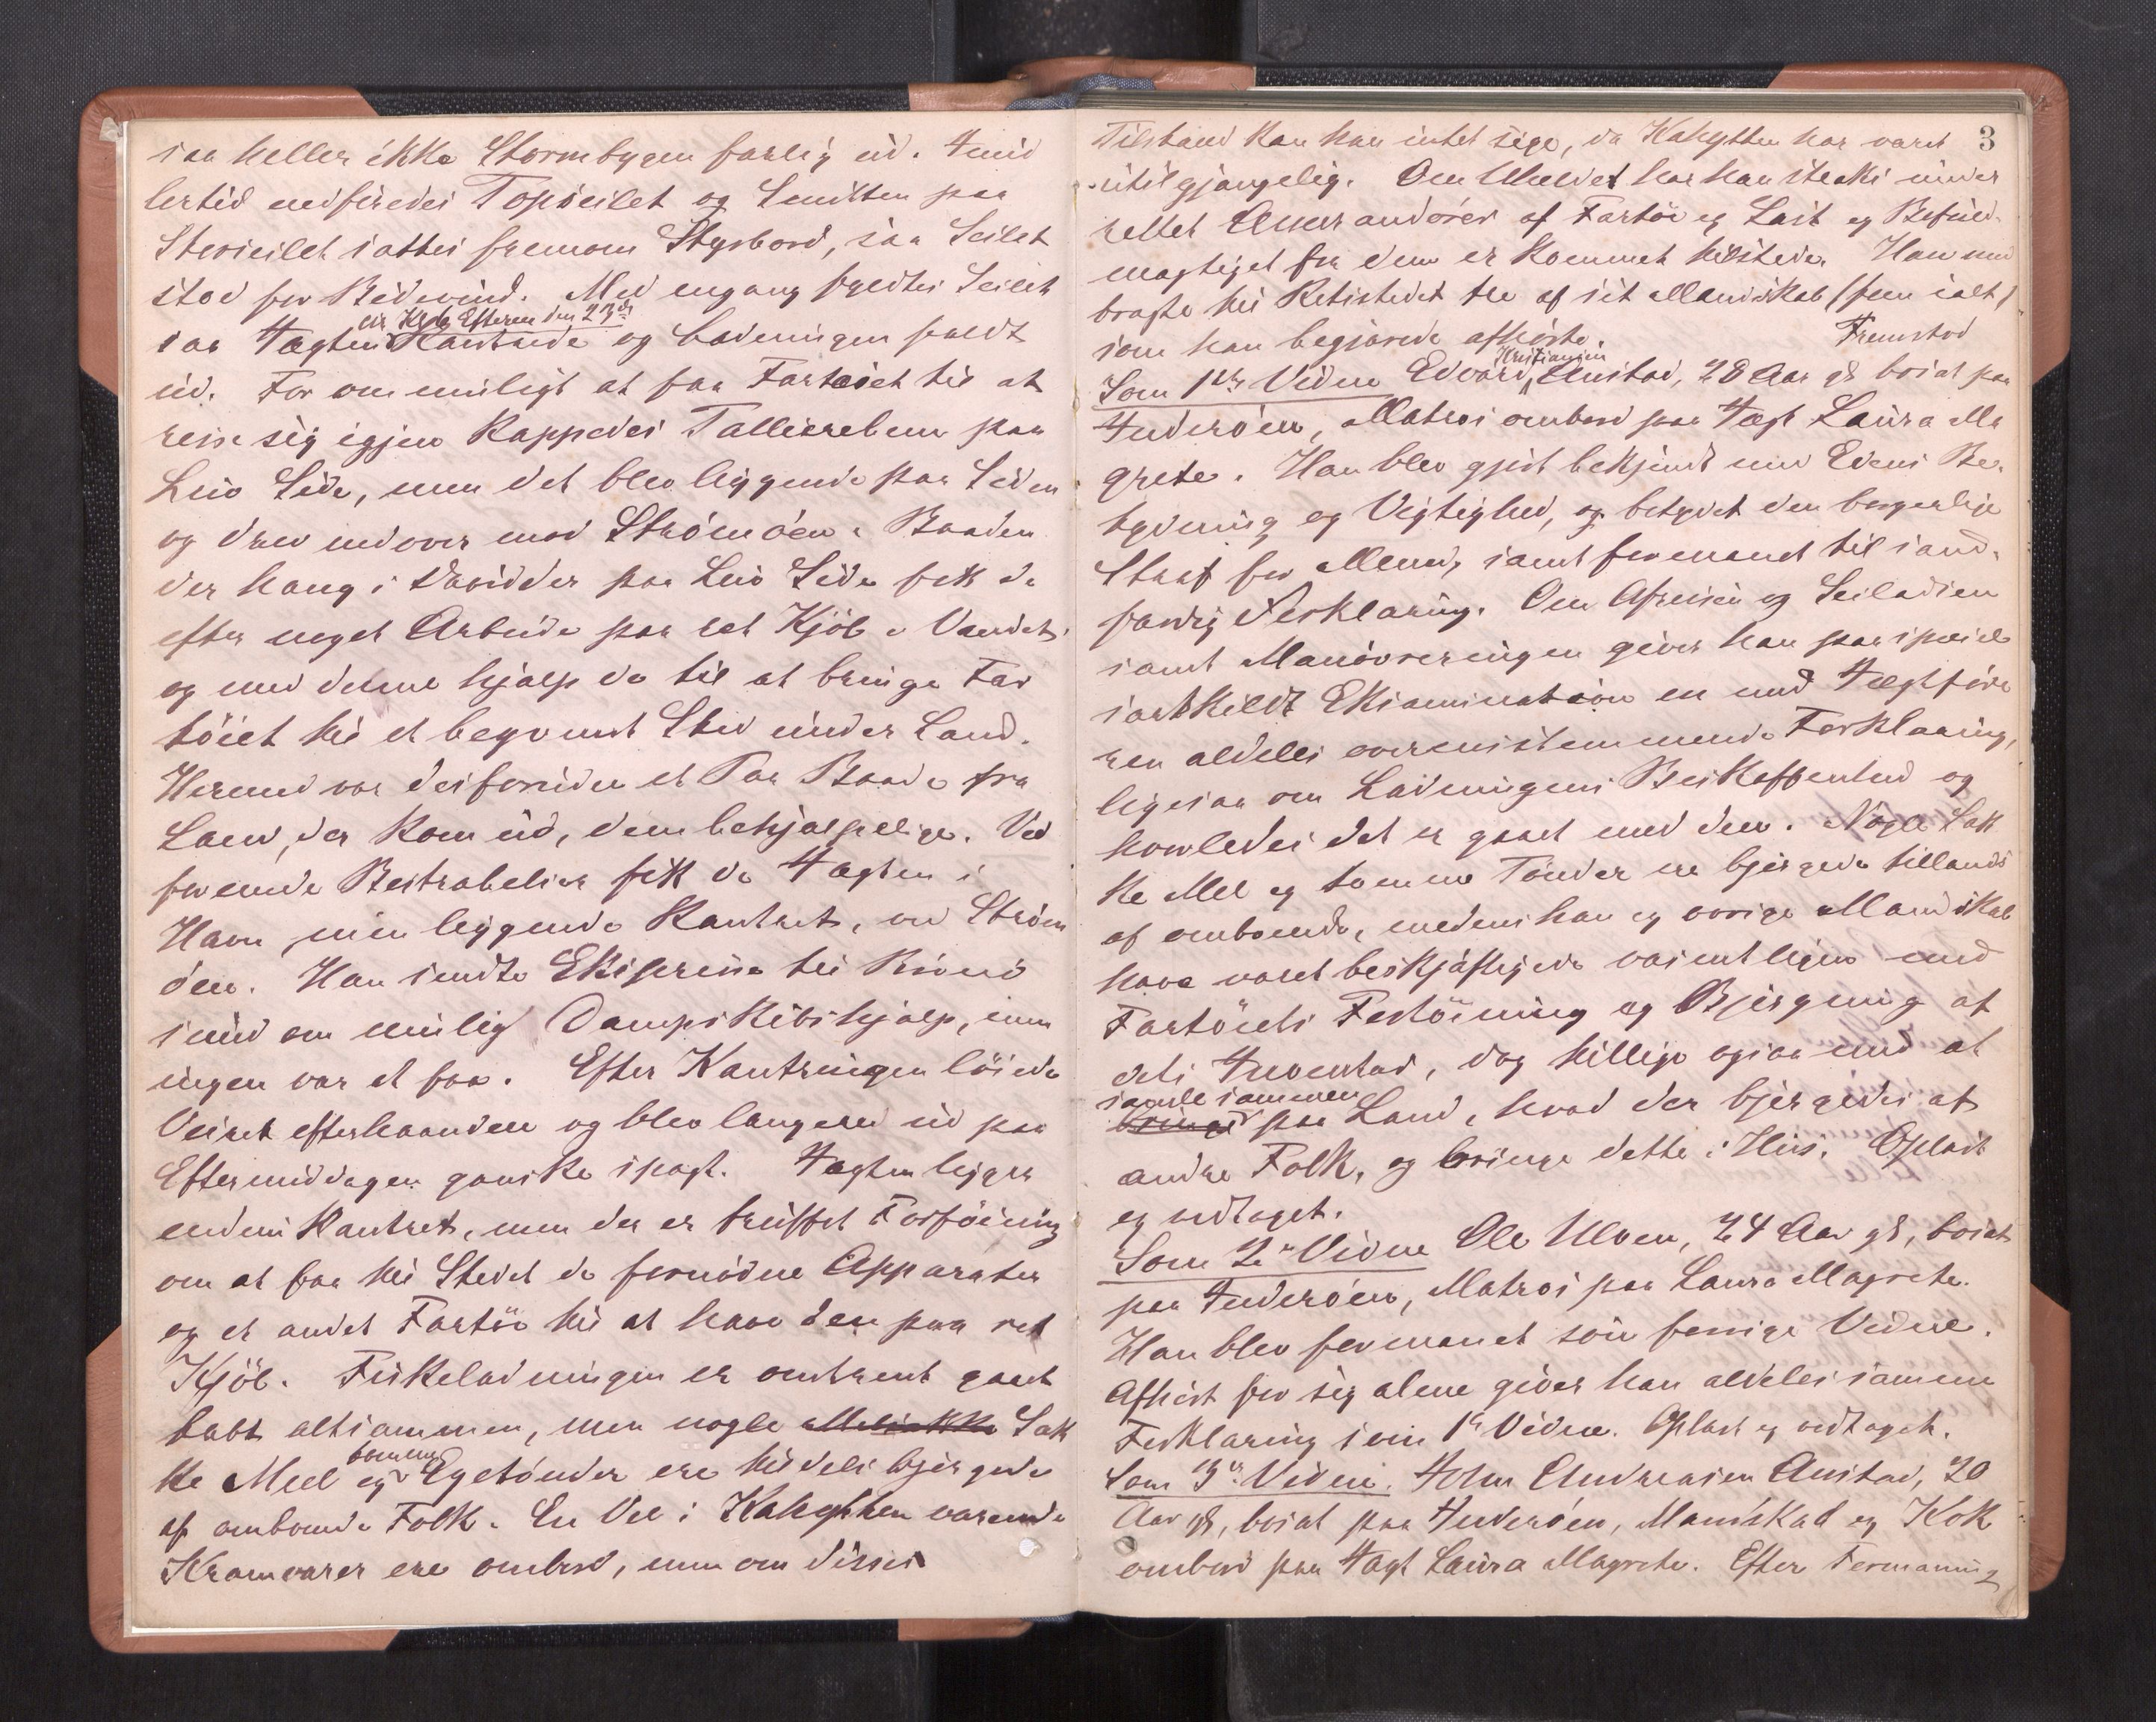 saa heller ikke Stormbygen farlig ud. Imid
lertid nedfiredes Topseilet og Smitten paa
Storseilet sattes fremom Styrbord, saa Seilet
stod for Bidevind. Med engang fyldtes Seilet
ca Kl 6 Efterm den 23de
saa Jagten kantrede og Ladningen faldt
ud. For om muligt at faa Fartøiet til at
reise sig igjen kappedes Talliereberne paa
Luv Side, men det blev liggende paa Siden
og drev indover mod Strømøen. Baaden
der hang i Davidder paa Luv Side fik de
efter meget Arbeide paa ret Kjøl i Vandet
og med denne hjalp de til at bringe Far
tøiet til et bekvemt Sted under Land.
Hermed var desforuden et Par Baade fra
Land, der kom ud, dem behjælpelige. Ved
forenede Bestræbelser fik de Jagten i
Havn, men liggende kantret, ved Strøm
øen. Han sendte Ekspresse til
sund om mulig Dampskibshjælp, men
ingen var at faa. Efter Kantringen løiede
Veiret efterhaanden og blev længere ud paa
Eftermiddagen ganske spagt. Jagten ligger
endnu kantret, men der er truffet Forføining
om at faa til Stedet de fornødne Apparater
og et andet Fartøi til at have den paa ret
Kjøl. Fiskeladningen er omtrent gaaet
tabt altsammen, men nogle Sæk
tomme
ke Meel og Egetønder ere tildels bjergede
af omboende Folk. En Del i Kahytten værende
Kramvarer ere ombord, men om disses
3
Tilstand kan han intet sige, da Kahytten har været
utilgjængelig. Om Uheldet har han straks under
rettet Assurandører af Fartøi og Last og Befuld
mægtiget fra dem er kommet tilstede. Han med
bragte til Retsstedet tre af sit Mandskab (fem ialt)
som han begjærede afhørte. Fremstod
Kristiansen
Som 1ste Vidne Edvard Anstad, 28 Aar gl. bosat paa
Inderøen, Matros ombord paa Jagt Laura Ma
grete. Han blev gjort bekjendt med Edens Be
tydning og Vigtighed, og betydet den borgerlige
Straf for Mened, samt formanet til sand
færdig Forklaring. Om Afreisen og Seiladsen
samt Manøvreringen giver han paa speciel
særskildt Eksamination en med Jagtføre
ren aldeles overensstemmende Forklaring,
ligesaa om Ladningens Beskaffenhed og
hvorledes det er gaaet med den. Nogle Sæk
ke Mel og tomme Tønder ere bjergede tillands
af omboende, medens han og øvrige Mandskab
have været beskjæftigede væsentligen med
Fartøiets Fortøining og Bjergning af
dets Inventar, dog tillige ogsaa med at
samle sammen
bringe paa Land, hvad der bjergedes af
andre Folk, og bringe dette i Hus. Oplæst
og vedtaget.
Som 2det Vidne Ole Ulven, 24 Aar gl, bosat
paa Inderøen, Matros paa Laura Magrete.
Han blev formanet som forrige Vidne.
Afhørt for sig alene giver han aldeles samme
Forklaring som 1ste Vidne. Oplæst og vedtaget.
Som 3die Vidne. John Andreasen Anstad, 20
Aar gl, bosat paa Inderøen, Mandskab og Kok
ombord paa Jagt Laura Magrete. Efter Formaning